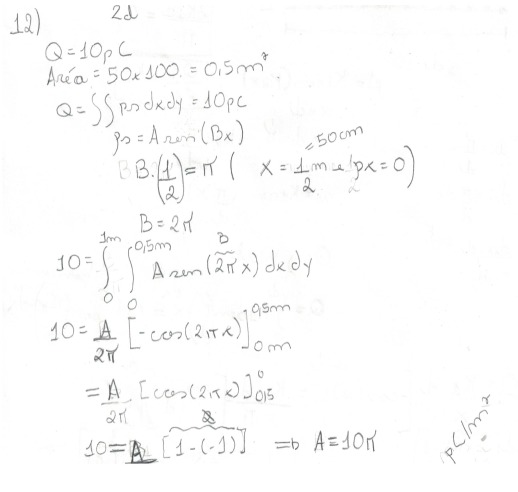 12) 2d
Q = 10pC
Aréa = 50x100 = 0,5m²
Q = ∫∫ ρs dxdy = 10pC
ρs = A sen(Bx)
B.(1/2) = π ( x = 1/2 m e ρx = 0)
= 50cm
B = 2π
10 = ∫₀^1m ∫₀^0,5m A sen(2πx) dxdy
B
10 = A/2π [-cos(2πx)]_0m^0,5m
= A/2π [cos(2πx)]_0,5^0
2
10 = A [1-(-1)] => A = 10π pC/m²
2π